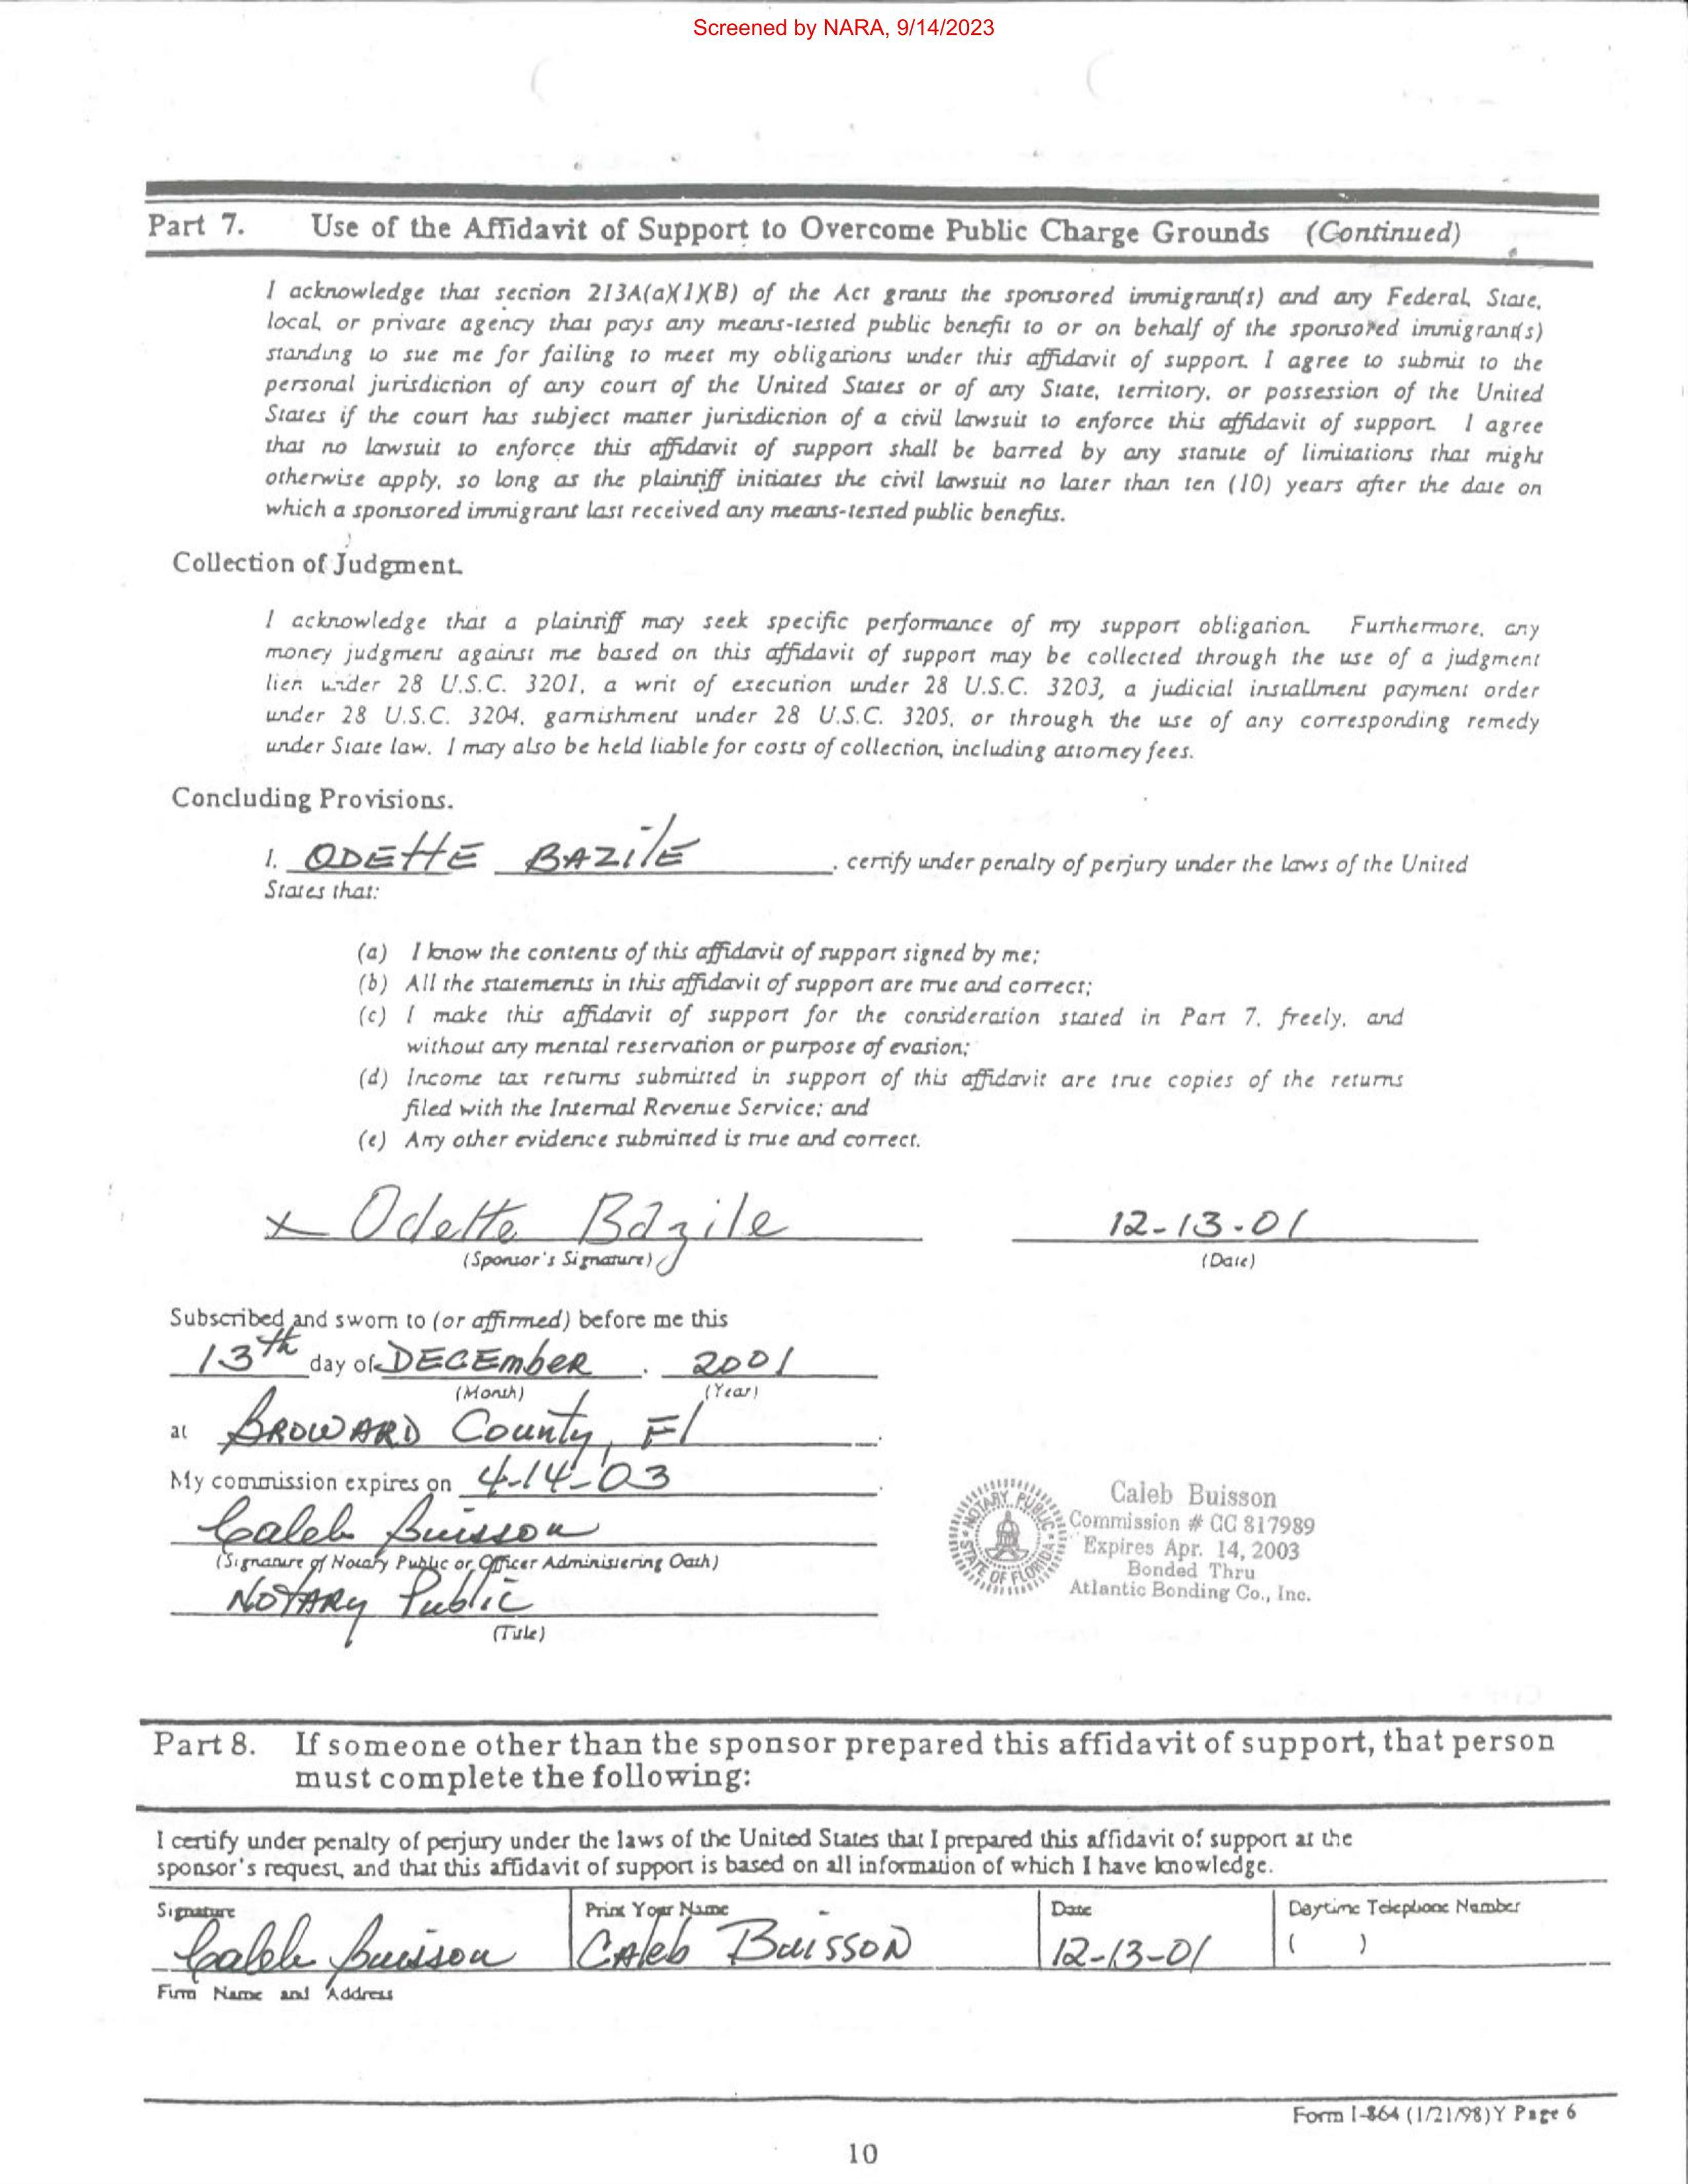 Screened by NARA, 9/14/2023
Part 7. Use of the Affidavit of Support to Overcome Public Charge Grounds (Continued)
I acknowledge that section 213A(a)(1)(B) of the Act grants the sponsored immigrant(s) and any Federal, State,
local, or private agency that pays any means-tested public benefit to or on behalf of the sponsored immigrant(s)
standing to sue me for failing to meet my obligations under this affidavit of support. I agree to submit to the
personal jurisdiction of any court of the United States or of any State, territory, or possession of the United
States if the court has subject matter jurisdiction of a civil lawsuit to enforce this affidavit of support. I agree
that no lawsuit to enforce this affidavit of support shall be barred by any statute of limitations that might
otherwise apply, so long as the plaintiff initiates the civil lawsuit no later than ten (10) years after the date on
which a sponsored immigrant last received any means-tested public benefits.
Collection of Judgment.
I acknowledge that a plaintiff may seek specific performance of my support obligation. Furthermore, any
money judgment against me based on this affidavit of support may be collected through the use of a judgment
lien under 28 U.S.C. 3201, a writ of execution under 28 U.S.C. 3203, a judicial installment payment order
under 28 U.S.C. 3204, garnishment under 28 U.S.C. 3205, or through the use of any corresponding remedy
under State law. I may also be held liable for costs of collection, including attorney fees.
Concluding Provisions.
I, ODETTE BAZilE, certify under penalty of perjury under the laws of the United
States that:
(a) I know the contents of this affidavit of support signed by me;
(b) All the statements in this affidavit of support are true and correct;
(c) I make this affidavit of support for the consideration stated in Part 7, freely, and
without any mental reservation or purpose of evasion;
(d) Income tax returns submitted in support of this affidavit are true copies of the returns
filed with the Internal Revenue Service; and
(e) Any other evidence submitted is true and correct.
x Odette Bazile 12-13-01
(Sponsor's Signature) (Date)
Subscribed and sworn to (or affirmed) before me this
13th day of DECEmbeR, 2001
(Month) (Year)
at BROWARD County, Fl.
My commission expires on 4-14-03.
Caleb Buisson
(Signature of Notary Public or Officer Administering Oath)
NOTARy Public
(Title)
NOTARY PUBLIC
STATE OF FLORIDA
Caleb Buisson
Commission # CC 817989
Expires Apr. 14, 2003
Bonded Thru
Atlantic Bonding Co., Inc.
Part 8. If someone other than the sponsor prepared this affidavit of support, that person
must complete the following:
I certify under penalty of perjury under the laws of the United States that I prepared this affidavit of support at the
sponsor's request, and that this affidavit of support is based on all information of which I have knowledge.
Signature Print Your Name Date Daytime Telephone Number
Caleb Buisson CAleb BuissoN 12-13-01 ( )
Firm Name and Address
Form I-864 (1/21/98)Y Page 6
10